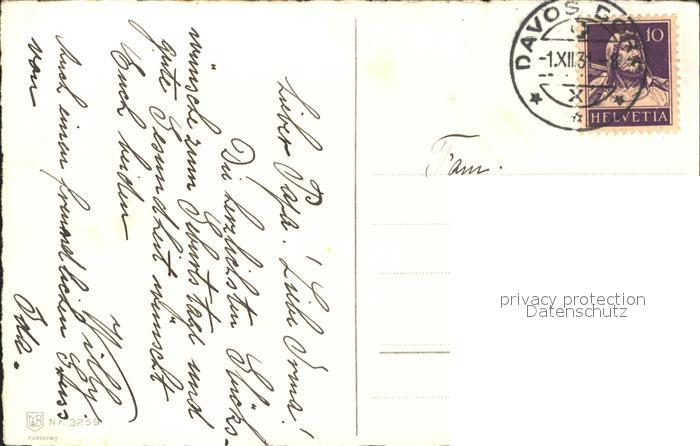 Lieber Papa! Liebe Oma!
Die herzlichsten Glück-
wünsch zum Geburtstag und
gute Gesundheit wünscht
Euch beiden
Willy.
Auch einen freundlichen Gruss
von
Fam.
DAVOS DORF
-1.XII.3
HELVETIA
10
privacy protection
Datenschutz
M&B
Nr. 3259
Germany